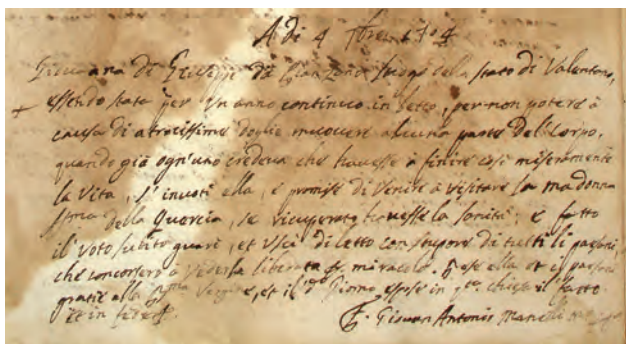 A di 4 7bre 1704
Giovana di Giuseppe da Gianzano luogo dello stato di Valentano,
essendo stata per un anno continuo in letto, per non potere à
causa di atrocissime doglie muovere alcuna parte del corpo,
quando già ogn'uno credeva che havesse à finire così miseramente
la vita, s'invotì ella, e promise di venire à visitare la madonna
SSma della Quercia, se ricuperato havesse la sanità; e fatto
il voto subito guarì, et uscì di letto con stupore di tutti li paesani,
che concorsero à vederla liberata miracolo. ella et i paesani
gratie alla Vergine, et il giorno espose in chiesa il fatto
et in fede
F. Giovan Antonio